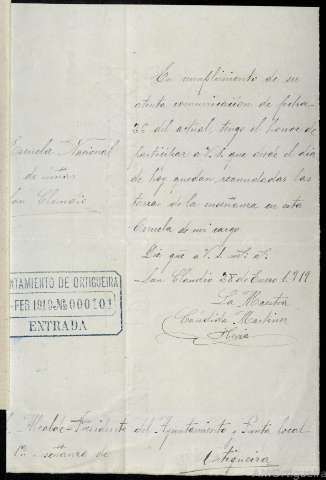 En cumplimiento de su
atenta comunicación de fecha
25 del actual, tengo el honor de
participar a V. S. que desde el día
de hoy quedan reanudadas las
tareas de la enseñanza en esta
Escuela de mi cargo.
Dios gue a V. S. m. a.
San Claudio 28 de Enero 1919
La Maestra
Cándida Martínez
Escuela Nacional
de niñas
San Claudio
NTAMIENTO DE ORTIGUEIRA
FEB 1919 - No 000101
ENTRADA
Alcalde-Presidente del Ayuntamiento y Junta local
señanza de Ortigueira